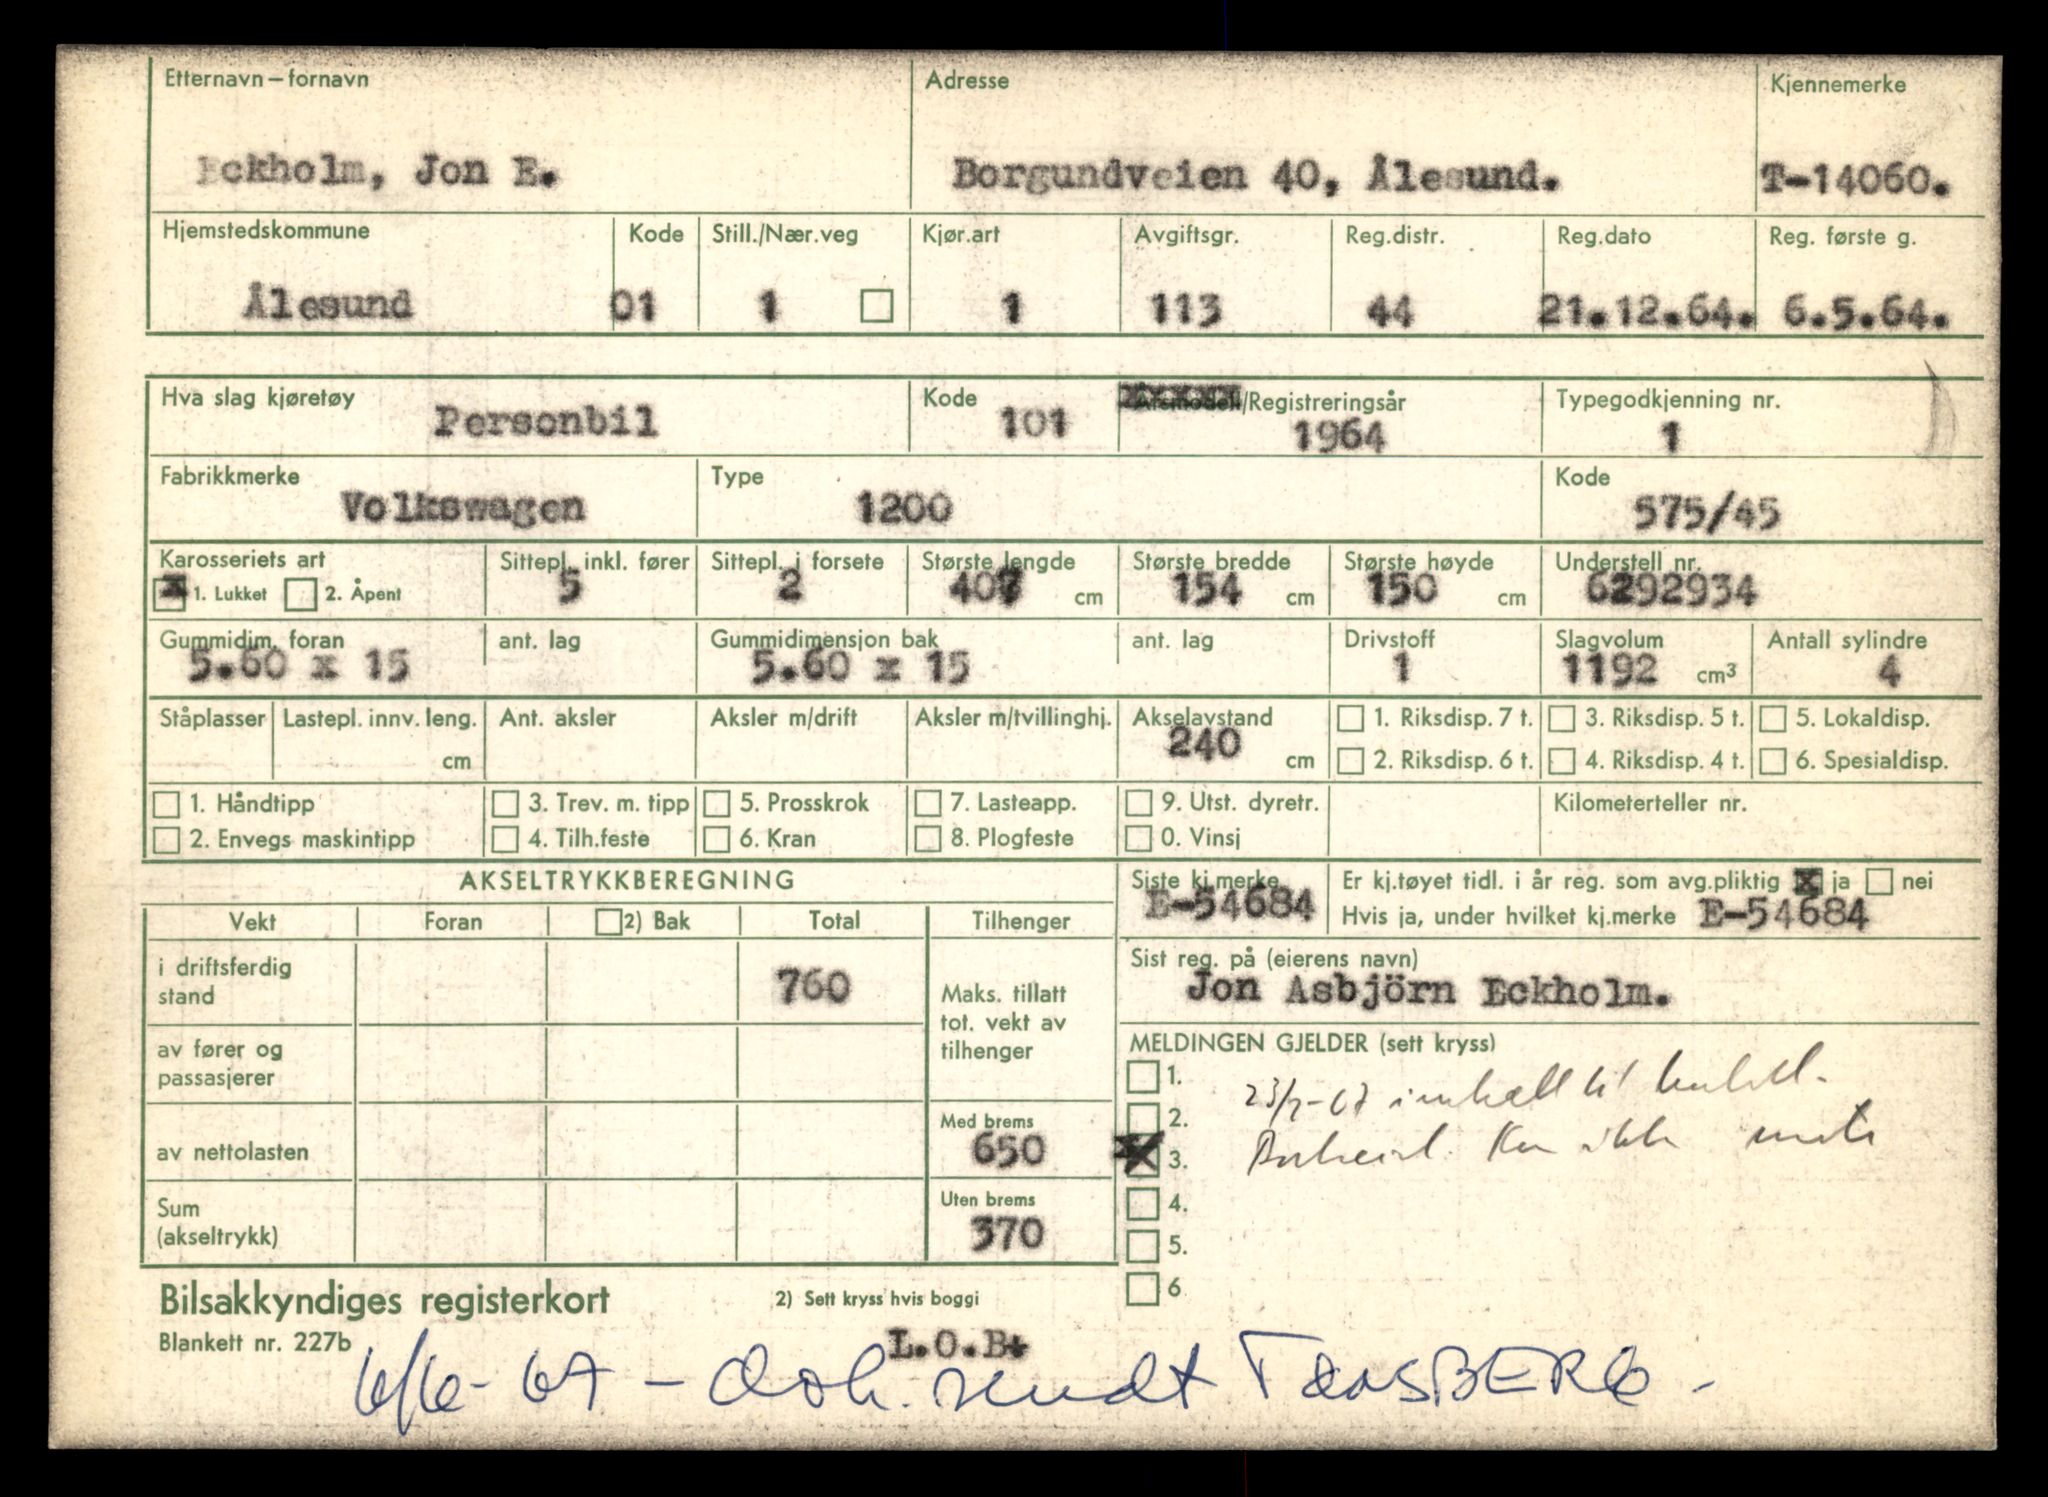 Etternavn – fornavn Adresse Kjennemerke
Eckholm, Jon E. Borgundveien 40, Ålesund. T-14060.
Hjemstedskommune Kode Still./Nær.veg Kjør.art Avgiftsgr. Reg.distr. Reg.dato Reg. første g.
Ålesund 01 1 1 113 44 21.12.64. 6.5.64.
Hva slag kjøretøy Kode /Registreringsår Typegodkjenning nr.
Personbil 101 1964 1
Fabrikkmerke Type Kode
Volkswagen 1200 575/45
Karosseriets art Sittepl. inkl. fører Sittepl. i forsete Største lengde Største bredde Største høyde Understell nr.
x 1. Lukket 2. Åpent 5 2 407 cm 154 cm 150 cm 6292934
Gummidim. foran ant. lag Gummidimensjon bak ant. lag Drivstoff Slagvolum Antall sylindre
5.60 x 15 5.60 x 15 1 1192 cm³ 4
Ståplasser Lastepl. innv. leng. Ant. aksler Aksler m/drift Aksler m/tvillinghj. Akselavstand 1. Riksdisp. 7 t. 3. Riksdisp. 5 t. 5. Lokaldisp.
cm 240 cm 2. Riksdisp. 6 t. 4. Riksdisp. 4 t. 6. Spesialdisp.
1. Håndtipp 3. Trev. m. tipp 5. Prosskrok 7. Lasteapp. 9. Utst. dyretr. Kilometerteller nr.
2. Envegs maskintipp 4. Tilh.feste 6. Kran 8. Plogfeste 0. Vinsj
AKSELTRYKKBEREGNING Siste kj.merke Er kj.tøyet tidl. i år reg. som avg.pliktig x ja nei
E-54684 Hvis ja, under hvilket kj.merke E-54684
Vekt Foran 2) Bak Total Tilhenger
Sist reg. på (eierens navn)
Jon Asbjörn Eckholm.
i driftsferdig stand 760 Maks. tillatt tot. vekt av tilhenger
MELDINGEN GJELDER (sett kryss)
av fører og passasjerer
1.
2.
Med brems
av nettolasten 650 x 3.
ikke
4.
Sum (akseltrykk) Uten brems 370
5.
6
Bilsakkyndiges registerkort 2) Sett kryss hvis boggi
Blankett nr. 227b L.O.B.
6/6-67 – dok. sendt TØNSBERG –